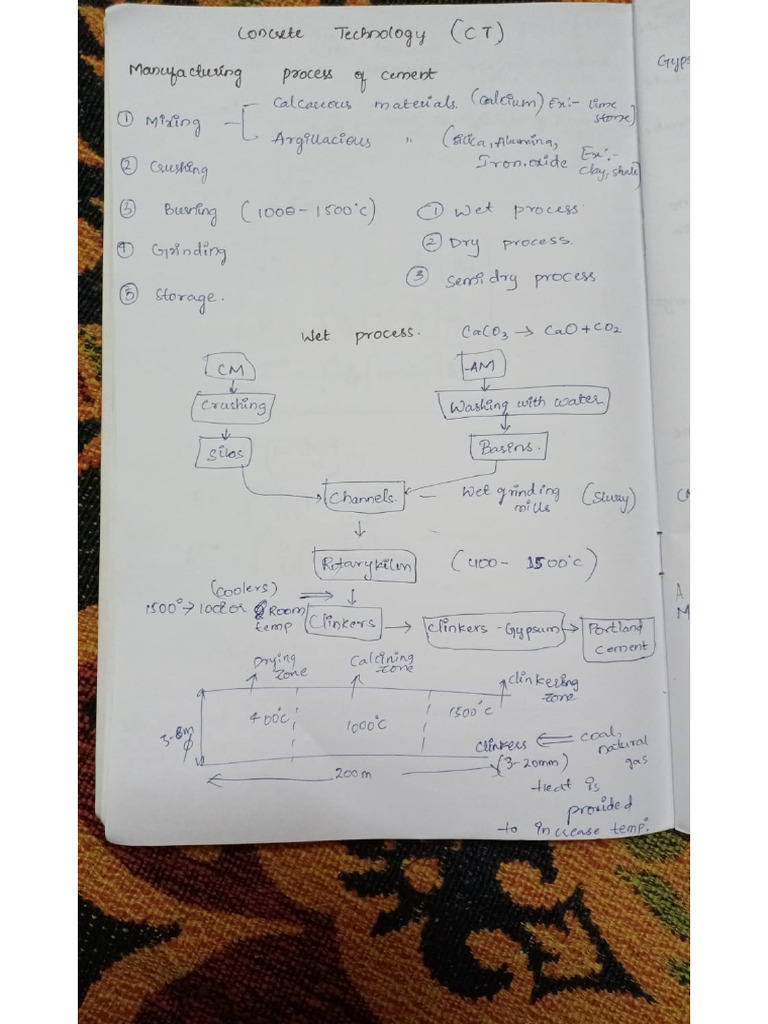 Concrete Technology (CT)
Gyps
Manufacturing process of cement
① Mixing
Calcareous materials. (calcium) Ex:- lime stone]
Argillacious " (silica, Alumina, Iron.oxide Ex:- clay, shale]
② Crushing
③ Burning (1000-1500°C)
④ Grinding
⑤ Storage.
① Wet process
② Dry process.
③ Semi dry process
Wet process. CaCO3 → CaO+CO2
CM
AM
Crushing
Washing with water
Silos
Basins.
Channels. - Wet grinding mills (Slurry)
Rotarykiln (400- 1500°C)
(coolers)
1500° → 100 or Room temp
Clinkers
Clinkers - Gypsum
Portland cement
Drying zone
Calcining zone
clinkering zone
400°C
1000°C
1500°C
3-8m ϕ
200m
clinkers (3-20mm)
coal, natural gas
Heat is provided
to increase temp.
A
M